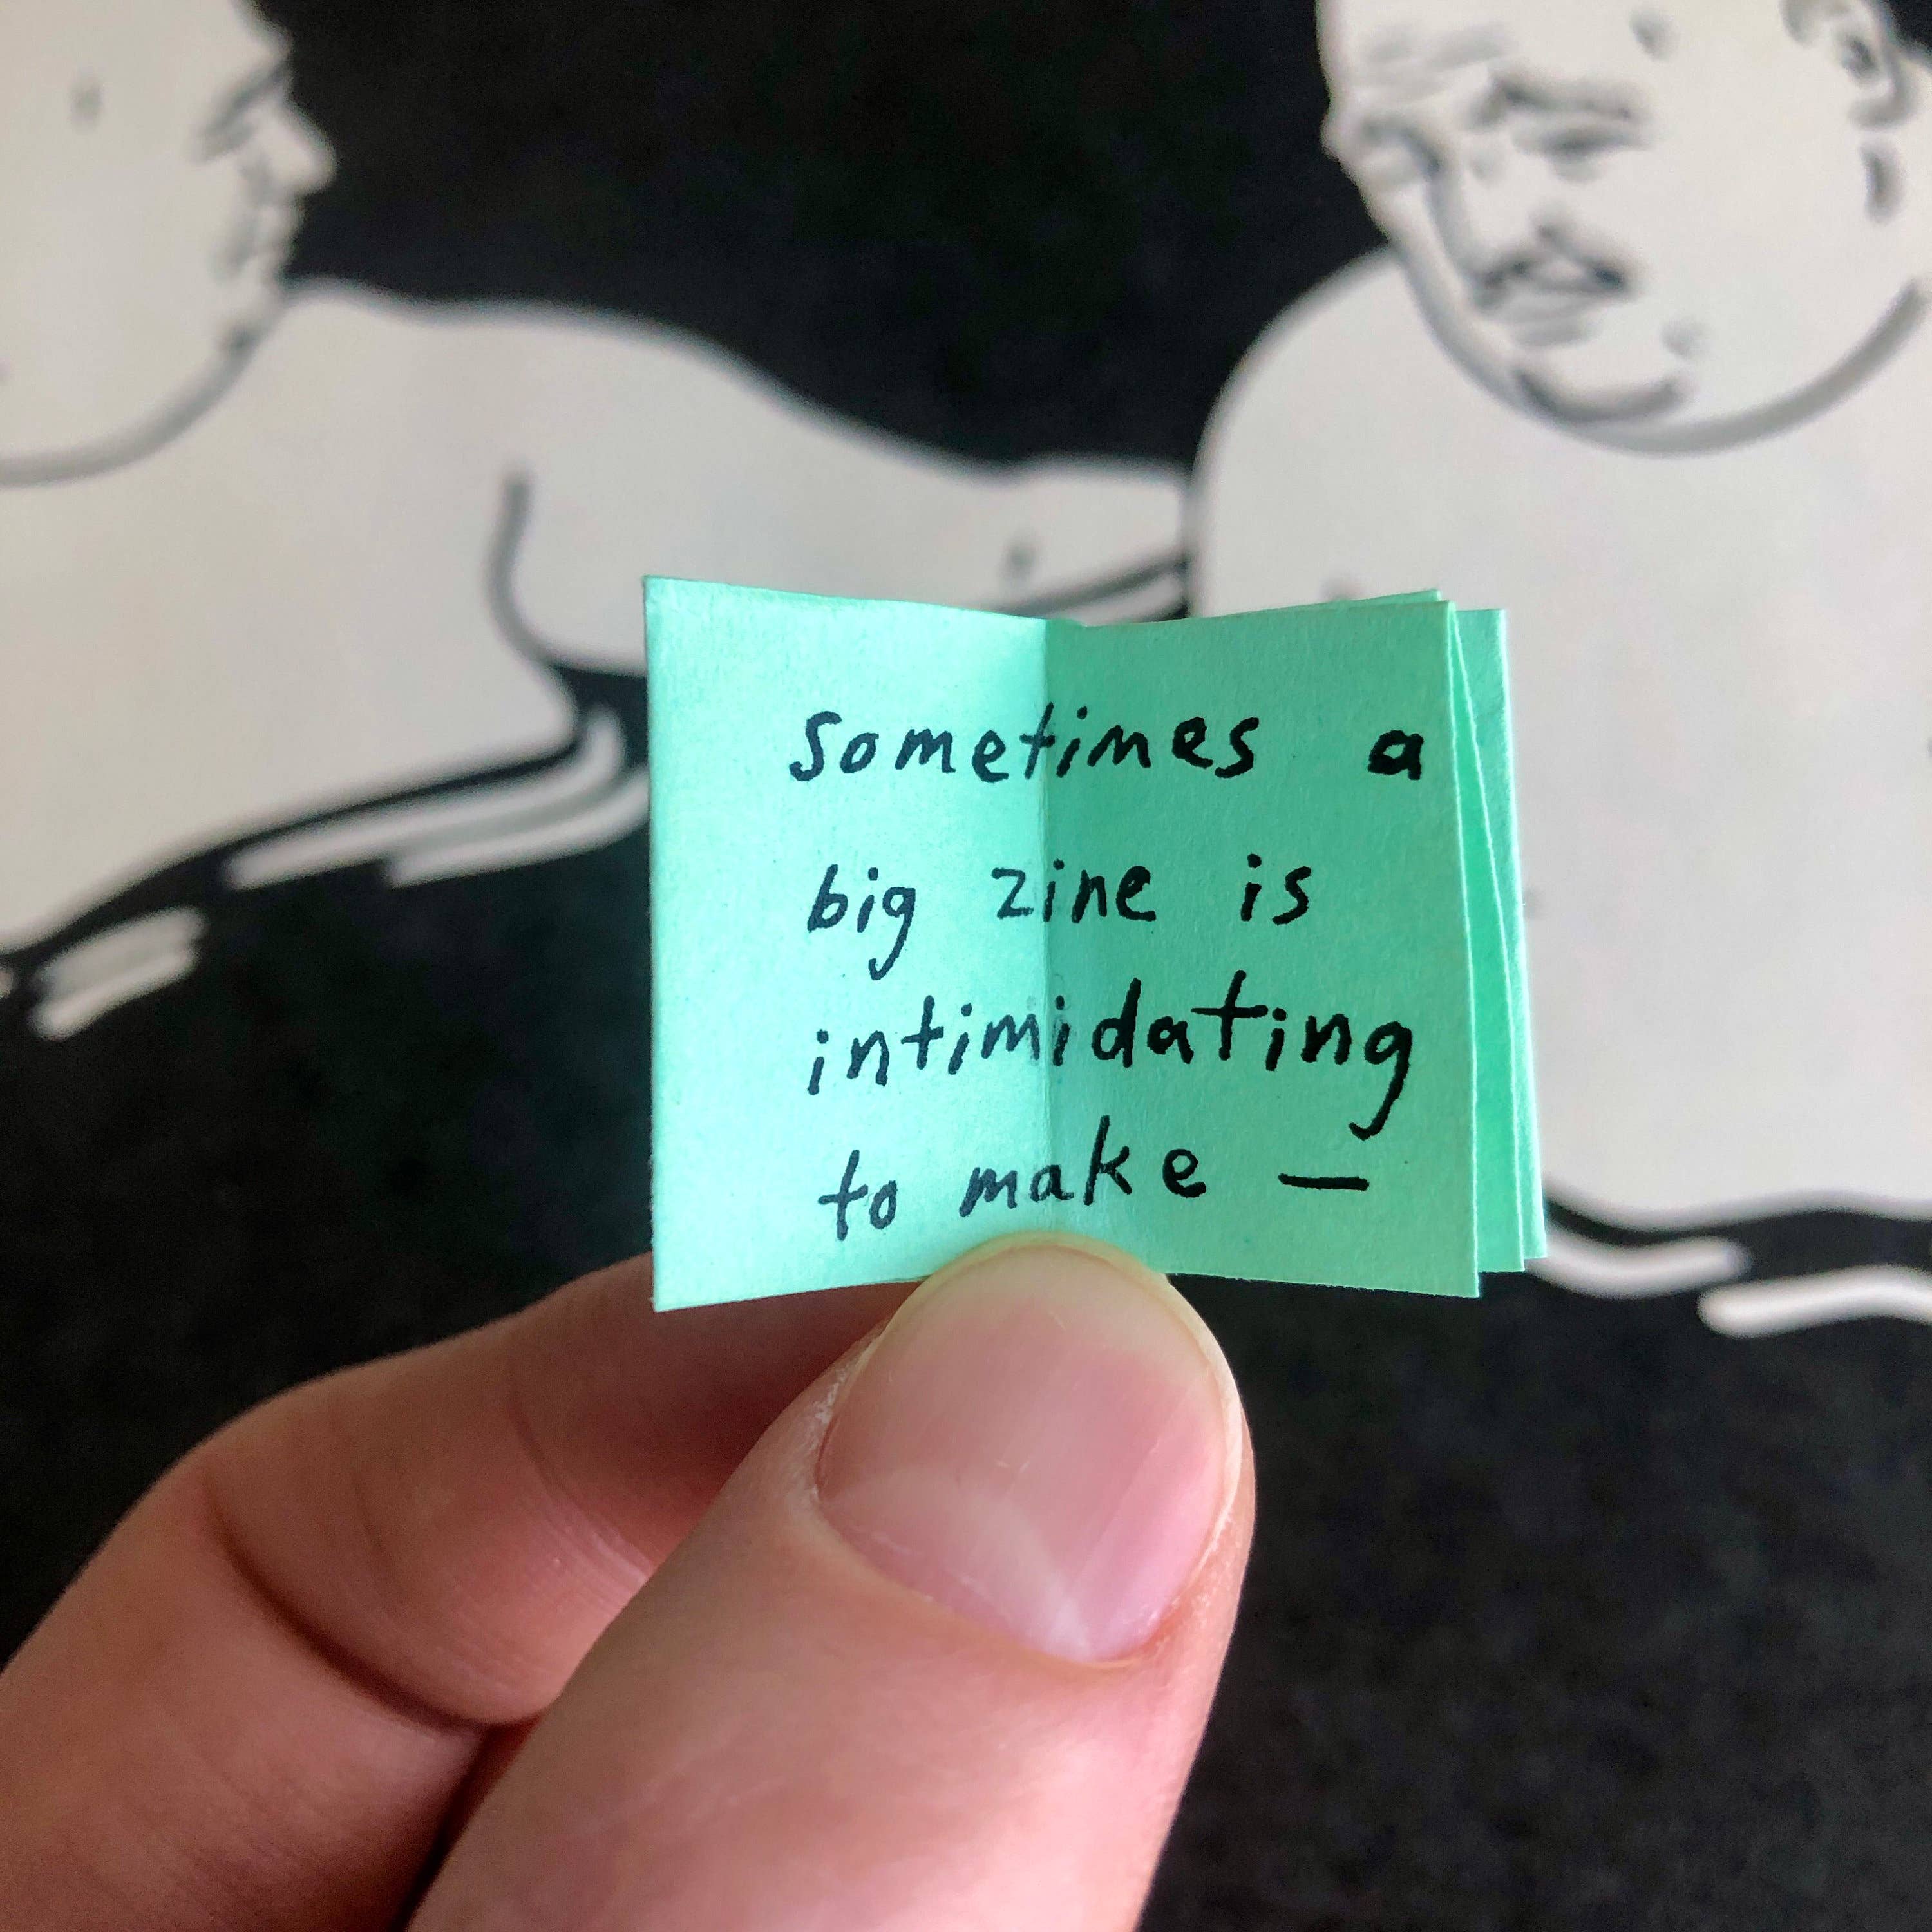 sometimes a
big zine is
intimidating
to make —